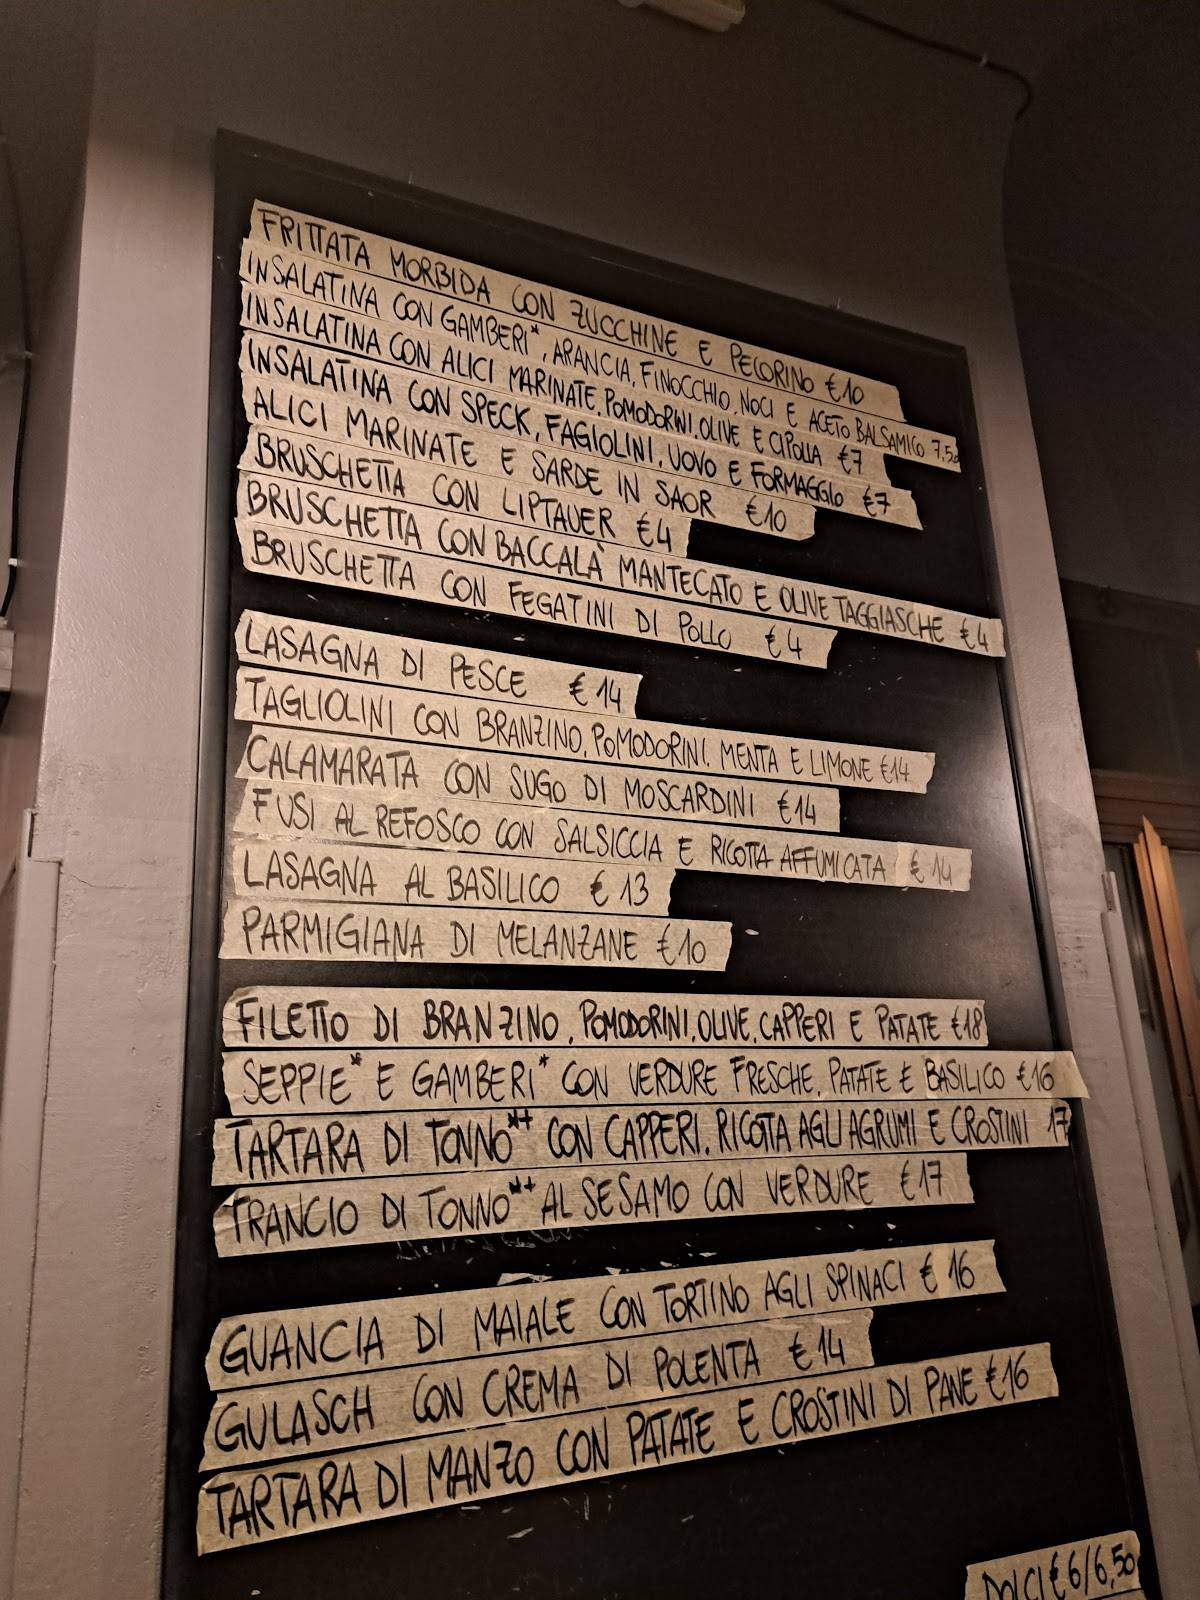 FRITTATA MORBIDA CON ZUCCHINE E PECORINO €10
INSALATINA CON GAMBERI*, ARANCIA, FINOCCHIO, NOCI E ACETO BALSAMICO 7,50
INSALATINA CON ALICI MARINATE, POMODORINI, OLIVE E CIPOLLA €7
INSALATINA CON SPECK, FAGIOLINI, UOVO E FORMAGGIO €7
ALICI MARINATE E SARDE IN SAOR €10
BRUSCHETTA CON LIPTAUER €4
BRUSCHETTA CON BACCALÀ MANTECATO E OLIVE TAGGIASCHE €4
BRUSCHETTA CON FEGATINI DI POLLO €4
LASAGNA DI PESCE €14
TAGLIOLINI CON BRANZINO, POMODORINI, MENTA E LIMONE €14
CALAMARATA CON SUGO DI MOSCARDINI €14
FUSI AL REFOSCO CON SALSICCIA E RICOTTA AFFUMICATA €14
LASAGNA AL BASILICO €13
PARMIGIANA DI MELANZANE €10
FILETTO DI BRANZINO, POMODORINI, OLIVE, CAPPERI E PATATE €18
SEPPIE* E GAMBERI* CON VERDURE FRESCHE, PATATE E BASILICO €16
TARTARA DI TONNO** CON CAPPERI, RICOTTA AGLI AGRUMI E CROSTINI 17
TRANCIO DI TONNO** AL SESAMO CON VERDURE €17
GUANCIA DI MAIALE CON TORTINO AGLI SPINACI €16
GULASCH CON CREMA DI POLENTA €14
TARTARA DI MANZO CON PATATE E CROSTINI DI PANE €16
DOLCI €6/6,50